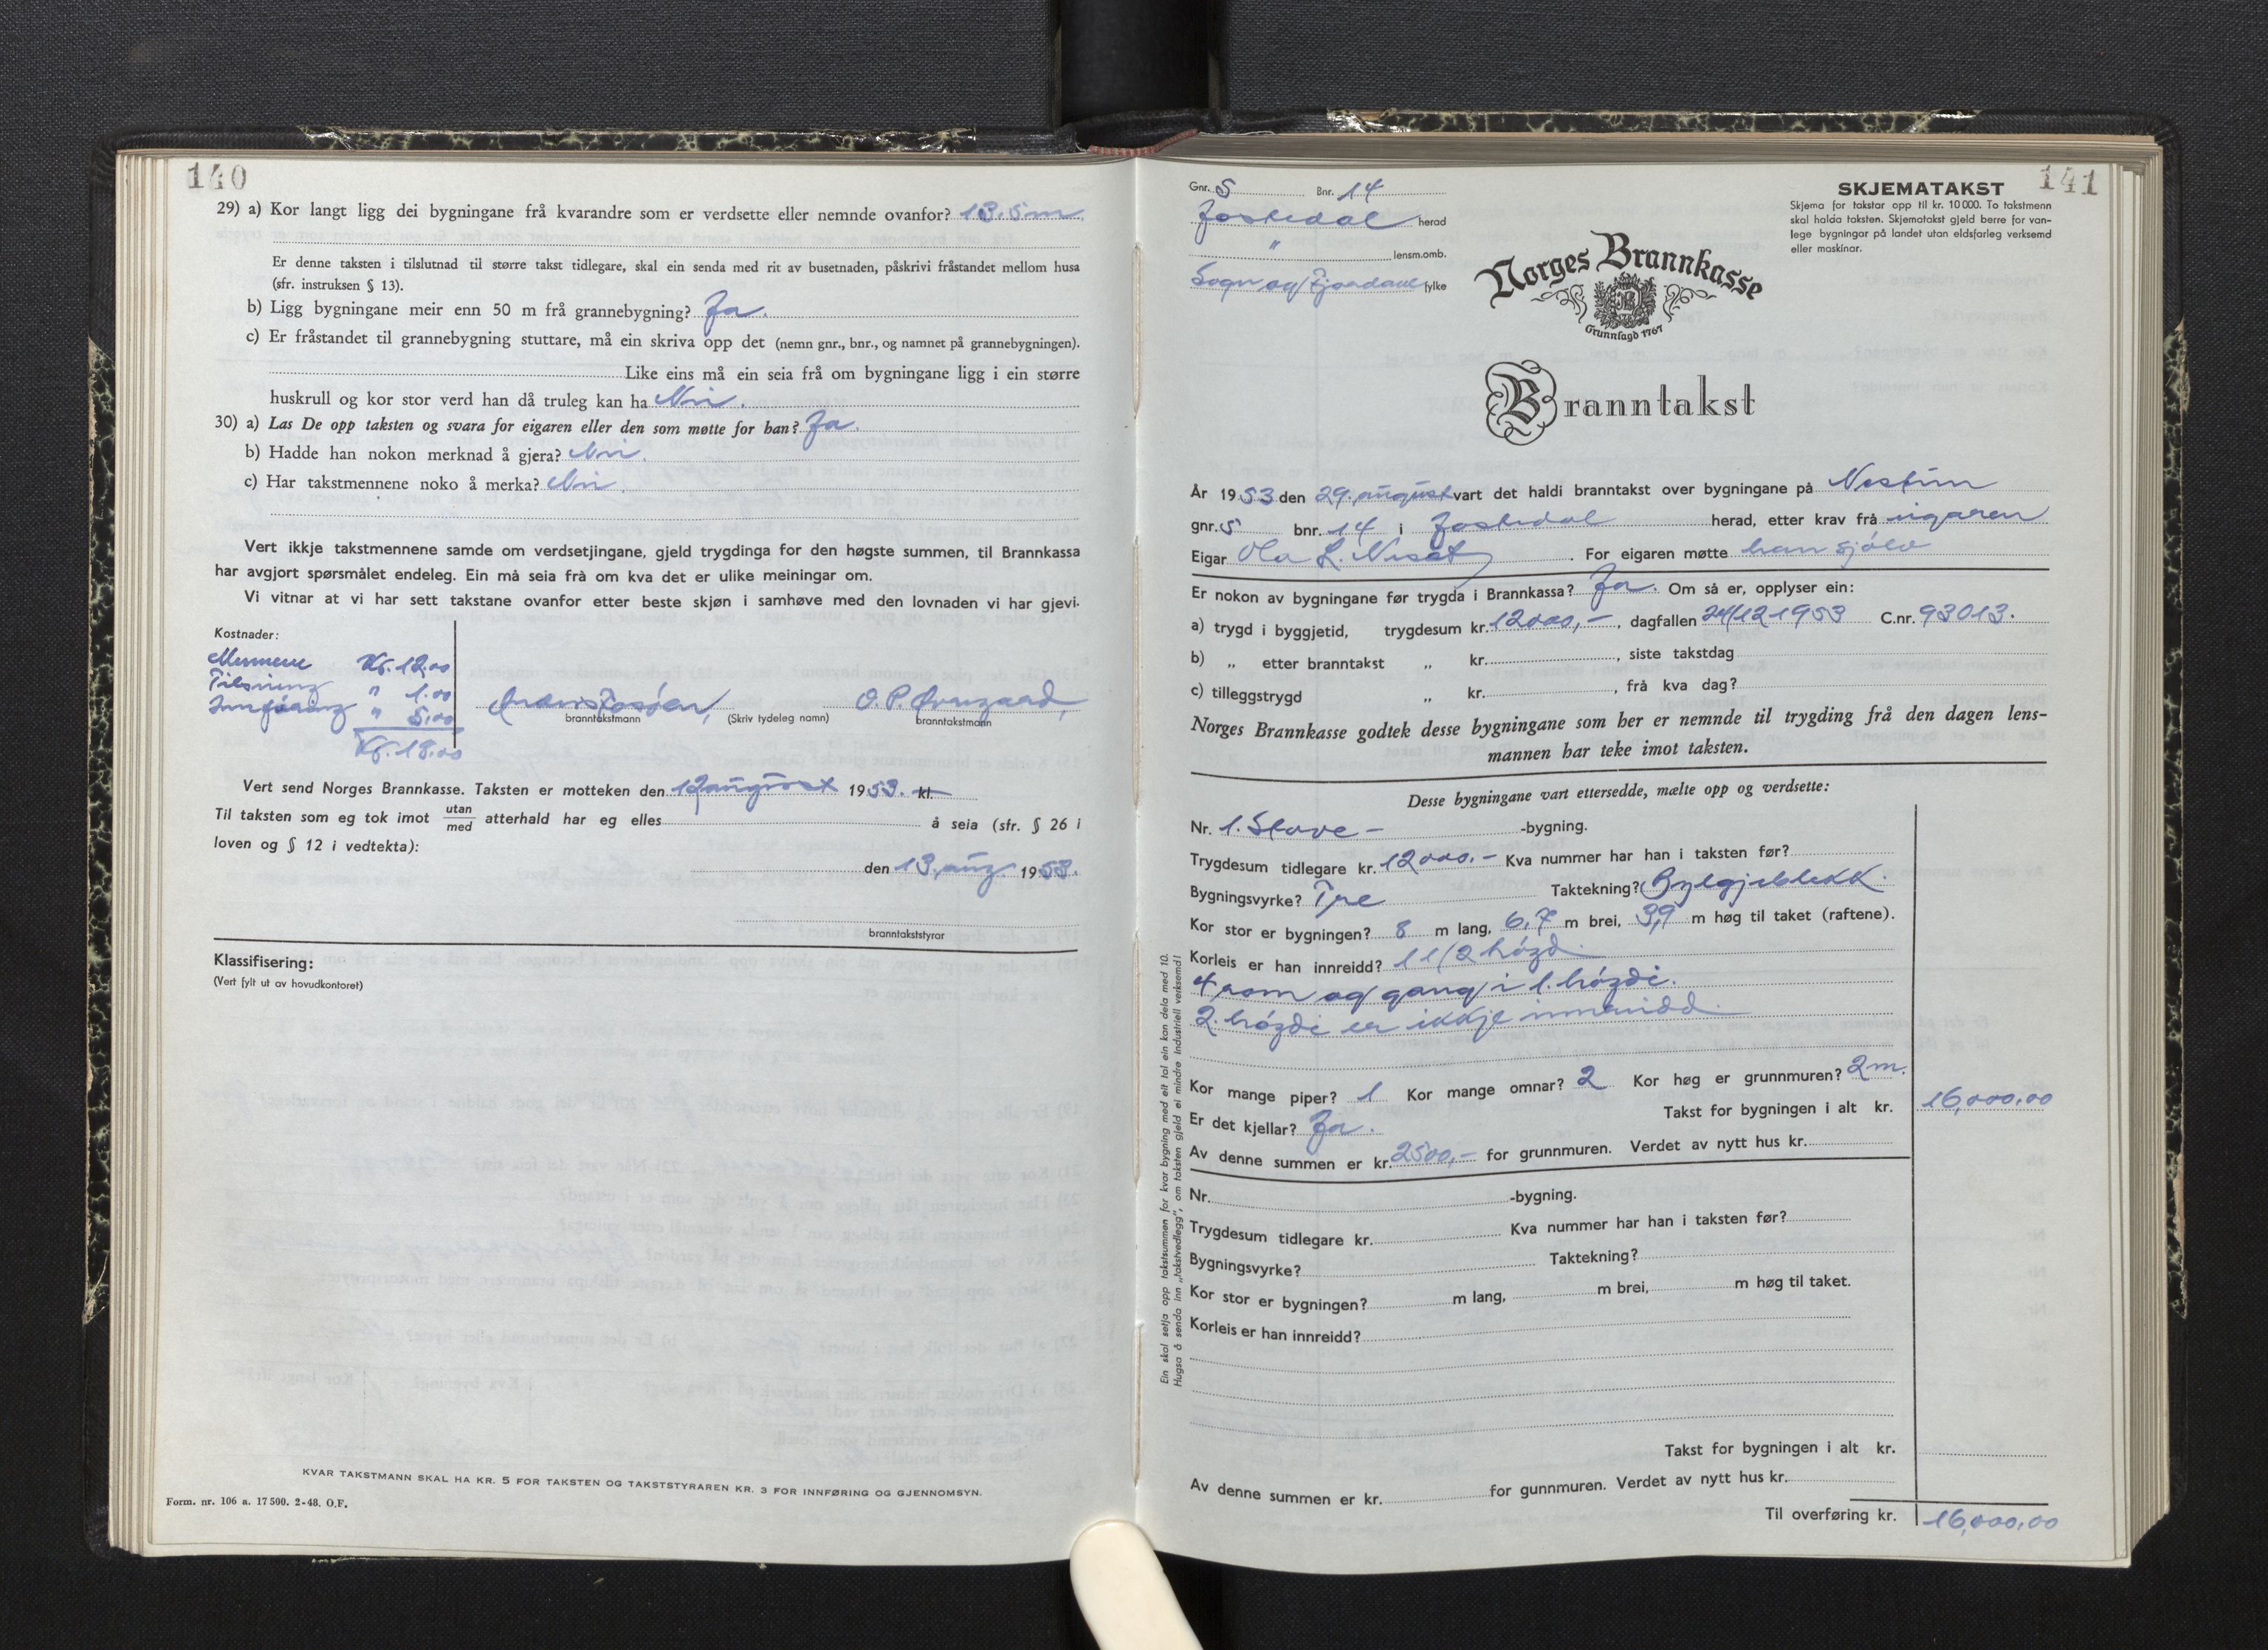 140
29) a) Kor langt ligg dei bygningane frå kvarandre som er verdsette eller nemnde ovanfor? 13.5m
Er denne taksten i tilslutnad til større takst tidlegare, skal ein senda med rit av busetnaden, påskrivi fråstandet mellom husa
(sfr. instruksen § 13).
b) Ligg bygningane meir enn 50 m frå grannebygning? Ja.
c) Er fråstandet til grannebygning stuttare, må ein skriva opp det (nemn gnr., bnr., og namnet på grannebygningen).
Like eins må ein seia frå om bygningane ligg i ein større
huskrull og kor stor verd han då truleg kan ha Nei.
30) a) Las De opp taksten og svara for eigaren eller den som møtte for han? Ja.
b) Hadde han nokon merknad å gjera? Nei.
c) Har takstmennene noko å merka? Nei.
Vert ikkje takstmennene samde om verdsetjingane, gjeld trygdinga for den høgste summen, til Brannkassa
har avgjort spørsmålet endeleg. Ein må seia frå om kva det er ulike meiningar om.
Vi vitnar at vi har sett takstane ovanfor etter beste skjøn i samhøve med den lovnaden vi har gjevi.
Kostnader:
Mennene Kr. 12.00
" 1.00
Innføring " 5.00
Kr. 18.00
O. P.
branntakstmann (Skriv tydeleg namn) branntakstmann
Vert send Norges Brannkasse. Taksten er motteken den 12 august 1953. kl.
Til taksten som eg tok imot utan/med atterhald har eg elles å seia (sfr. § 26 i
loven og § 12 i vedtekta):
den 13. aug. 1953.
branntakststyrar
Klassifisering:
(Vert fylt ut av hovudkontoret)
KVAR TAKSTMANN SKAL HA KR. 5 FOR TAKSTEN OG TAKSTSTYRAREN KR. 3 FOR INNFØRING OG GJENNOMSYN.
Form. nr. 106 a. 17500. 2-48. O.F.
141
Gnr. 5 Bnr. 14
Jostedal herad
" lensm.omb.
Sogn og Fjordane fylke
SKJEMATAKST
Skjema for takstar opp til kr. 10 000. To takstmenn
skal halda taksten. Skjematakst gjeld berre for van-
lege bygningar på landet utan eldsfarleg verksemd
eller maskinar.
Norges Brannkasse
Grunnlagd 1767
Branntakst
År 1953 den 29. august vart det haldi branntakst over bygningane på
gnr. 5 bnr. 14 i Jostedal herad, etter krav frå eigaren
Eigar Ola L. For eigaren møtte han sjølv
Er nokon av bygningane før trygda i Brannkassa? Ja. Om så er, opplyser ein:
a) trygd i byggjetid, trygdesum kr. 12000,-, dagfallen 24/12 1953 C.nr. 93013.
b) „ etter branntakst „ kr. , siste takstdag
c) tilleggstrygd „ kr. , frå kva dag?
Norges Brannkasse godtek desse bygningane som her er nemnde til trygding frå den dagen lens-
mannen har teke imot taksten.
Desse bygningane vart ettersedde, mælte opp og verdsette:
Nr. 1. Stove- -bygning.
Trygdesum tidlegare kr. 12000.- Kva nummer har han i taksten før?
Bygningsvyrke? Tre Taktekning? Bylgjeblekk.
Kor stor er bygningen? 8 m lang, 6,7 m brei, 3,9 m høg til taket (raftene).
Korleis er han innreidd? 1 1/2 høgd.
4 rom og gang i 1. høgdi.
2. høgdi er ikkje innreidd.
Kor mange piper? 1 Kor mange omnar? 2 Kor høg er grunnmuren? 2m.
Er det kjellar? Ja. Takst for bygningen i alt kr. 16,000.00
Av denne summen er kr. 2500,- for grunnmuren. Verdet av nytt hus kr.
Nr. -bygning.
Trygdesum tidlegare kr. Kva nummer har han i taksten før?
Bygningsvyrke? Taktekning?
Kor stor er bygningen? m lang, m brei, m høg til taket.
Korleis er han innreidd?
Takst for bygningen i alt kr.
Av denne summen er kr. for gunnmuren. Verdet av nytt hus kr.
Til overføring kr. 16,000.00
Ein skal setja opp takstsummen for kvar bygning med eit tal ein kan dela med 10.
Hugsa å senda inn „takstvedlegg", om taksten gjeld ei mindre industriell verksemd!